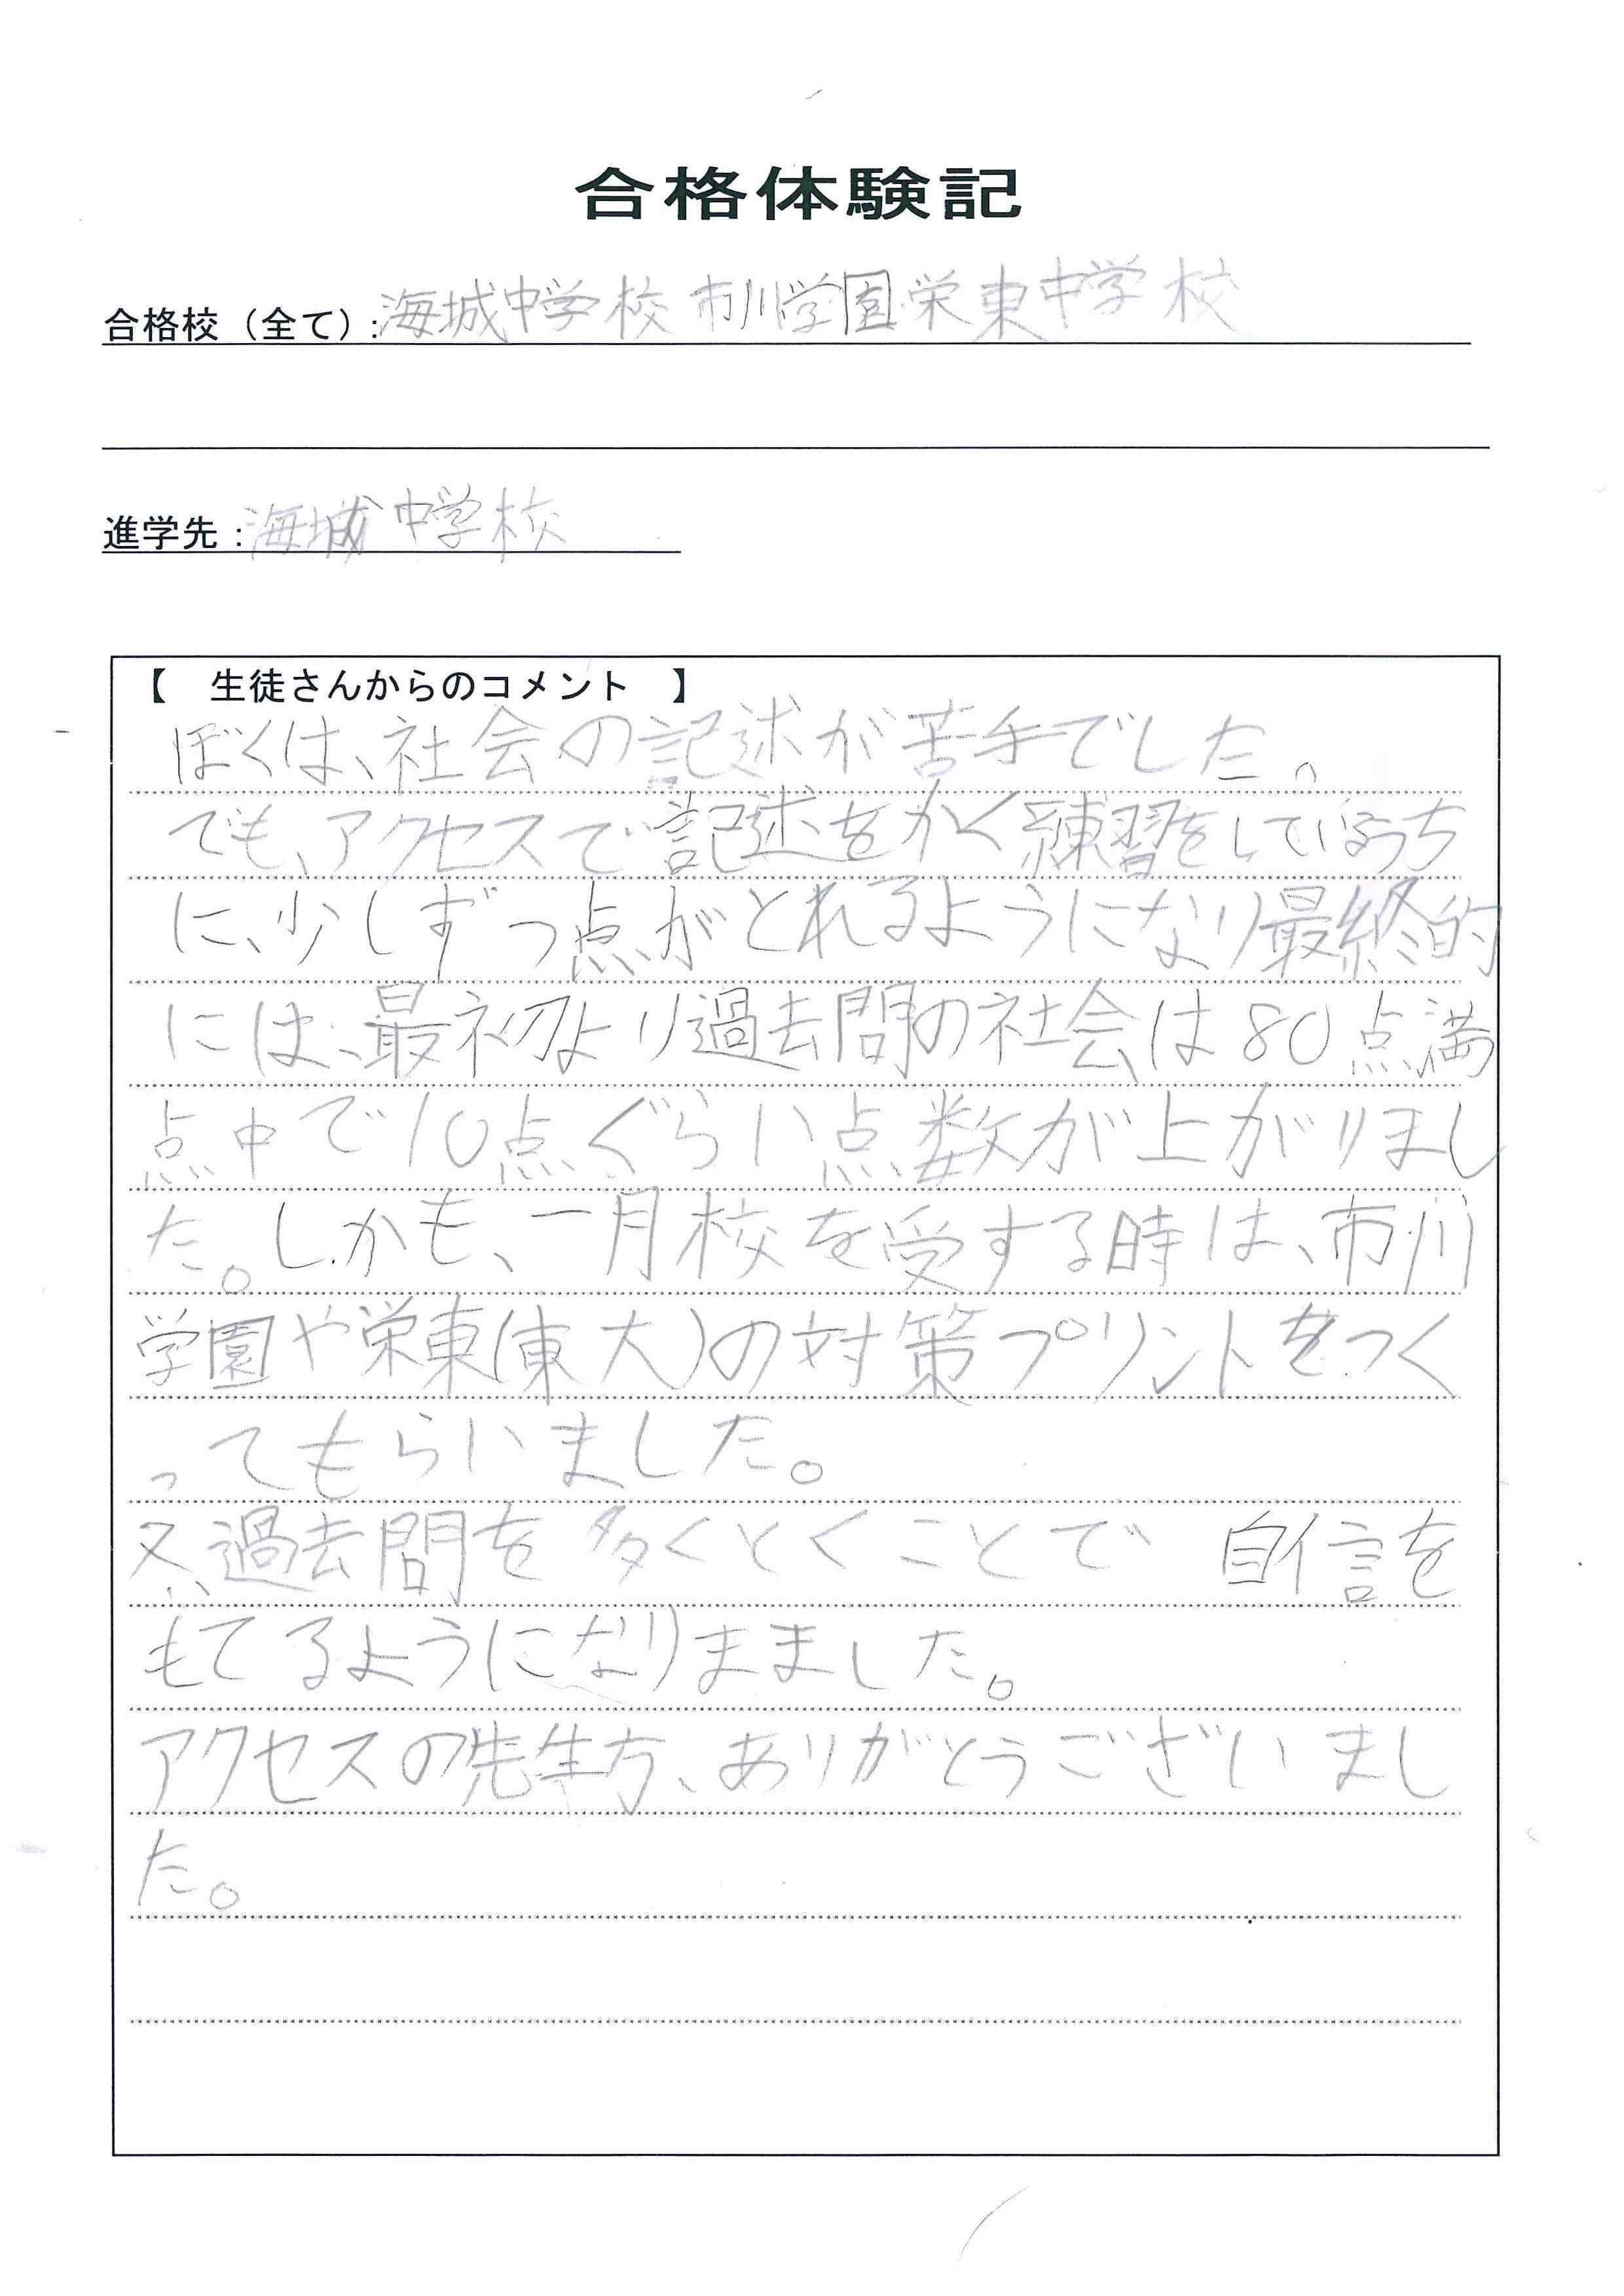 合格体験記
合格校（全て）:海城中学校 市川学園 栄東中学校
進学先：海城中学校
【　生徒さんからのコメント　】
ぼくは、社会の記述が苦手でした。
でも、アクセスで記述をかく練習をしているうち
に、少しずつ点がとれるようになり最終的
には、最初より過去問の社会は80点満
点中で10点ぐらい点数が上がりまし
た。しかも、一月校を受する時は、市川
学園や栄東(東大)の対策プリントをつく
ってもらいました。
又、過去問を多くとくことで 自信を
もてるようになりまました。
アクセスの先生方、ありがとうございまし
た。